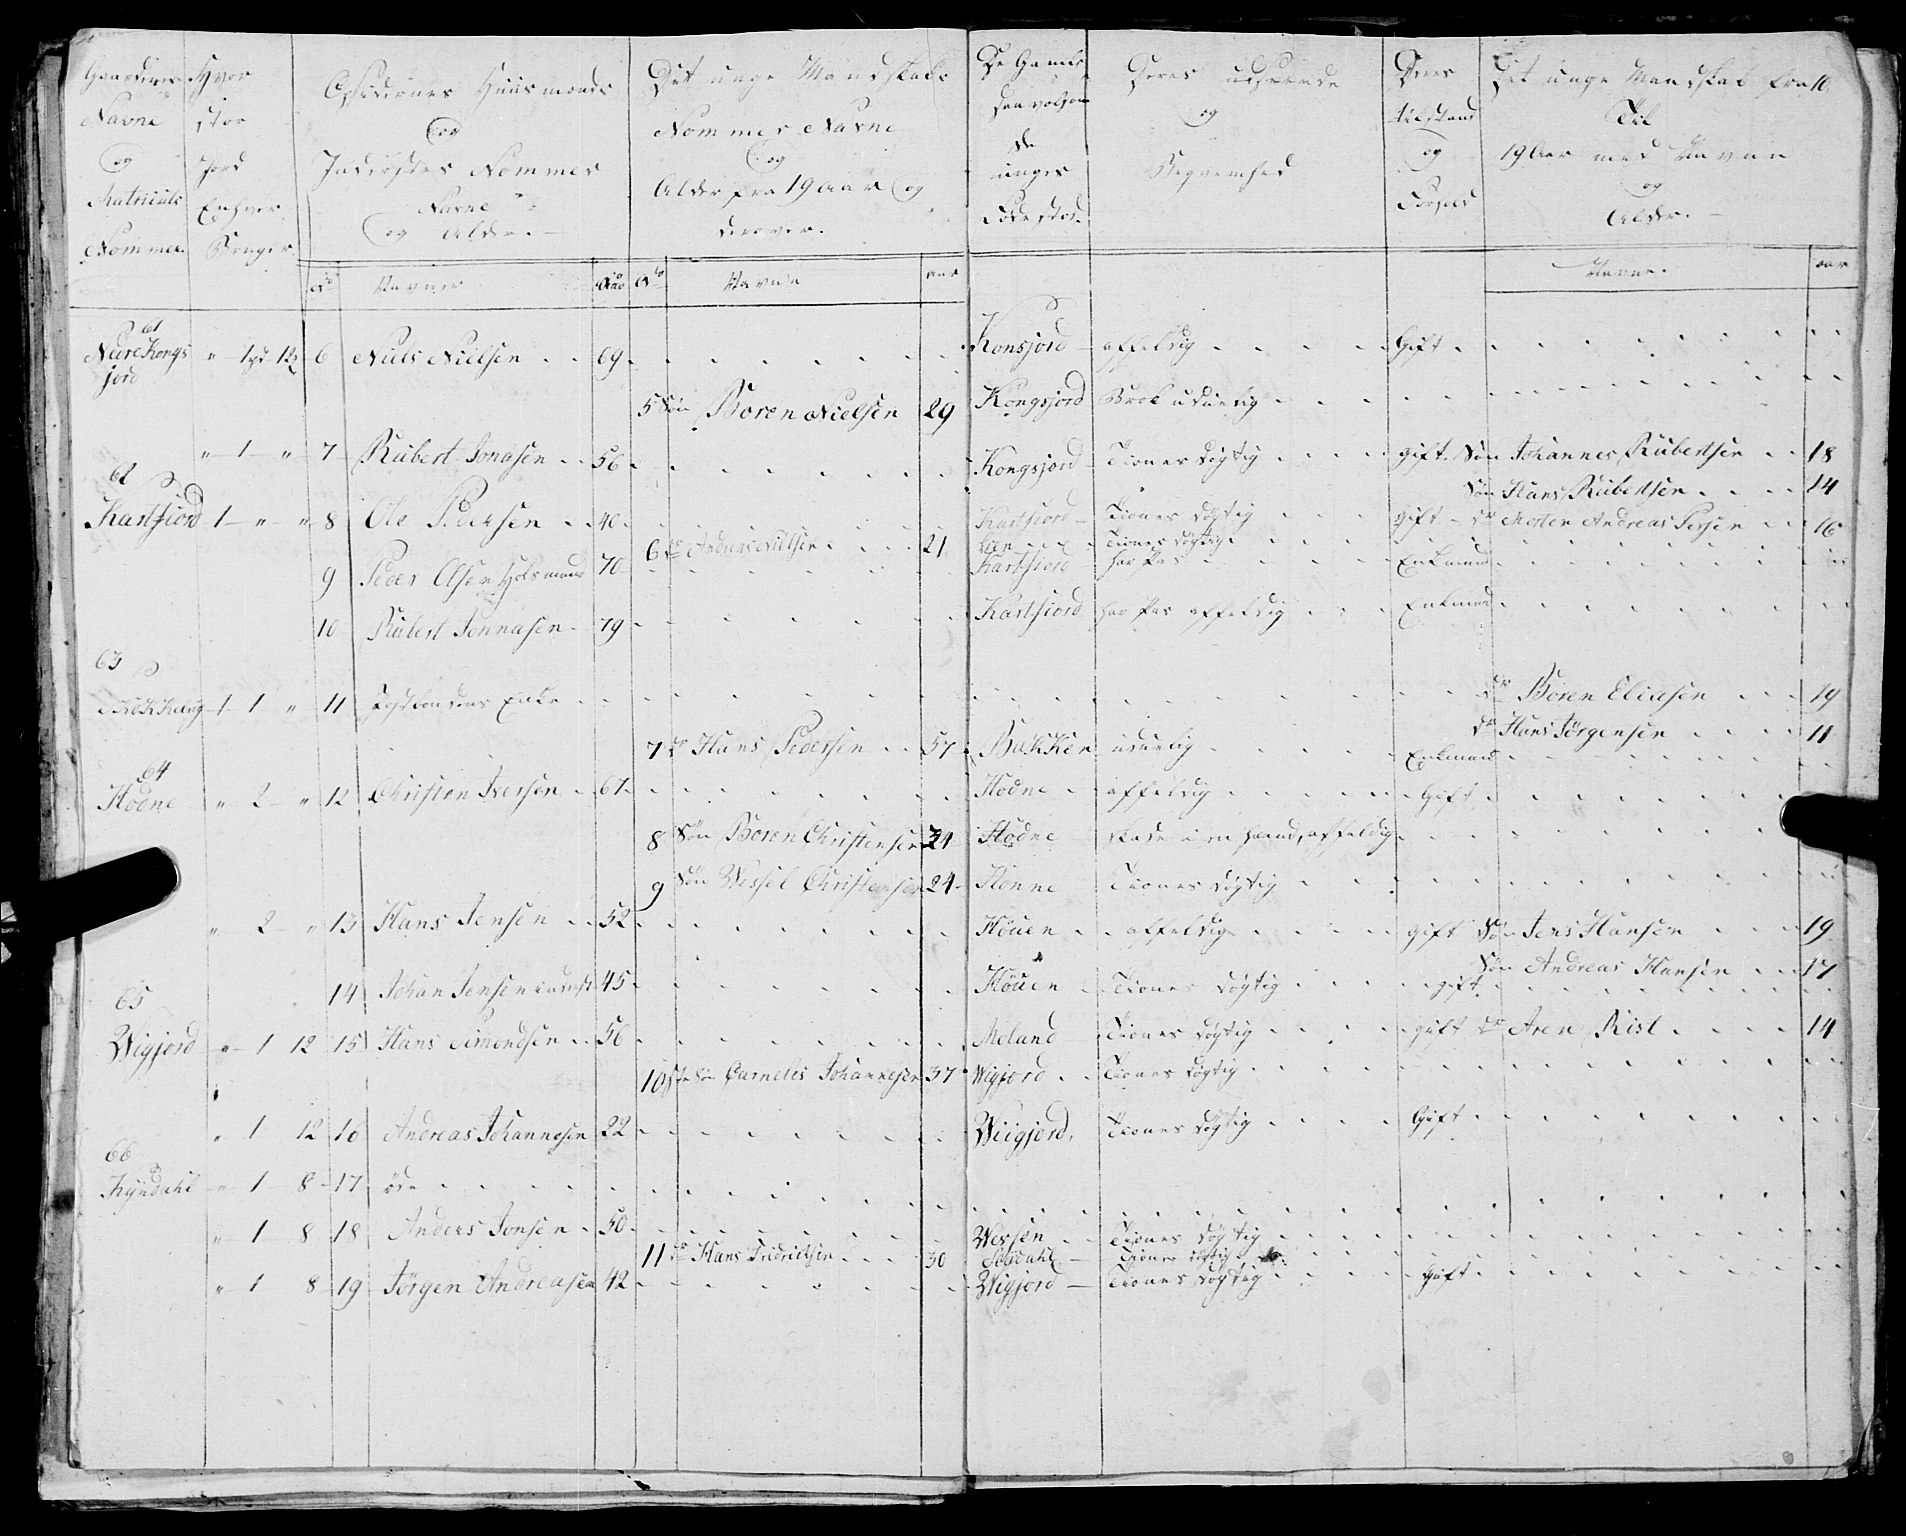 Gaardenes Navne og Matriculs Nommer
Hvor stor Jord Enhver Bruger
Opsidernes Huusmænds og Inderstes Nommer Navne og Alder.
Det unge Mandskabs Nommer Navne og Alder fra 19 Aar og derover.
De Gamle saavelsom de unges Fødestæd.
Deres udseende og Beqvemhed
Deres tilstand og
Det unge Mandskab fra 10 Til 19 Aar med Navne og Alder.
No Navner Aar No Navne aar Navne. aar
61 Nedre Kongsjord 12 6 Niels Nielsen 69 Konsjord affeldig Gift
5 Søn Boren Nielsen 29 Kongsjord Brok uduelig
" 1 " 7 Rubert Jonasen 56 Kongsjord Tienes døgtig gift Søn Johannes Rubertsen 18
Søn Hans Rubertsen 14
62 Kartfiord 1 " " 8 Ole Pedersen 40 Kartfiord Tienes døgtig gift dr Morten Andreas Persen 16
6 dr Andreas Nielsen 21 Tienes døgtig
9 Peder Olsen Huusmand 70 Kartfiord har Pas Enkemand
10 Rubert Jonnasen 79 Kartfiord har Pas affeldig Enkemand
63 1 1 " 11 Enke dr Boren Eliasen 19
dr Hans Jørgensen 11
7 dr Hans Pedersen 57 Bakken uduelig Enkemand
64 Hodne " 2 " 12 Christen Iversen 67 Hodne affeldig Gift
8 Søn Boren Christensen 34 Hodne skade i en haand, affeldig
9 Søn Wessel Christensen 24 Honne Tienes døgtig
" 2 " 13 Hans Jensen 52 Høuen affeldig gift Søn Jens Hansen 19
Søn Andreas Hansen 17
14 Johan Jensen 45 Høuen Tienes døgtig gift
65 Wigjord " 1 12 15 Hans Simondsen 56 Meland Tienes døgtig gift dr Aren Rist 14
10 Søn Carnelis Johannesen 37 Wigjord Tienes døgtig
" 1 12 16 Andreas Johannesen 22 Wiigjord, Tienes døgtig Gift
66 Kyndahl " 1 8 17 øde
" 1 8 18 Anders Jonsen 50 Wessen Tienes døgtig
11 dr Hans Fridricksen 30 Sogdahl Tienes døgtig
" 1 8 19 Jørgen Andreasen 42 Wigjord Tienes døgtig Gift